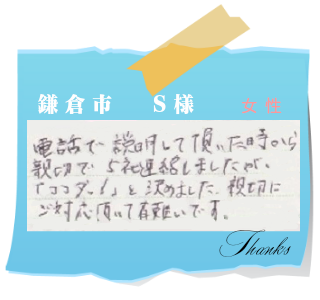 鎌倉市 S様 女性
電話で説明して頂いた時から
親切で5社連絡しましたが、
「ココダ!」と決めました。親切に
ご対応頂いて有難いです。
Thanks